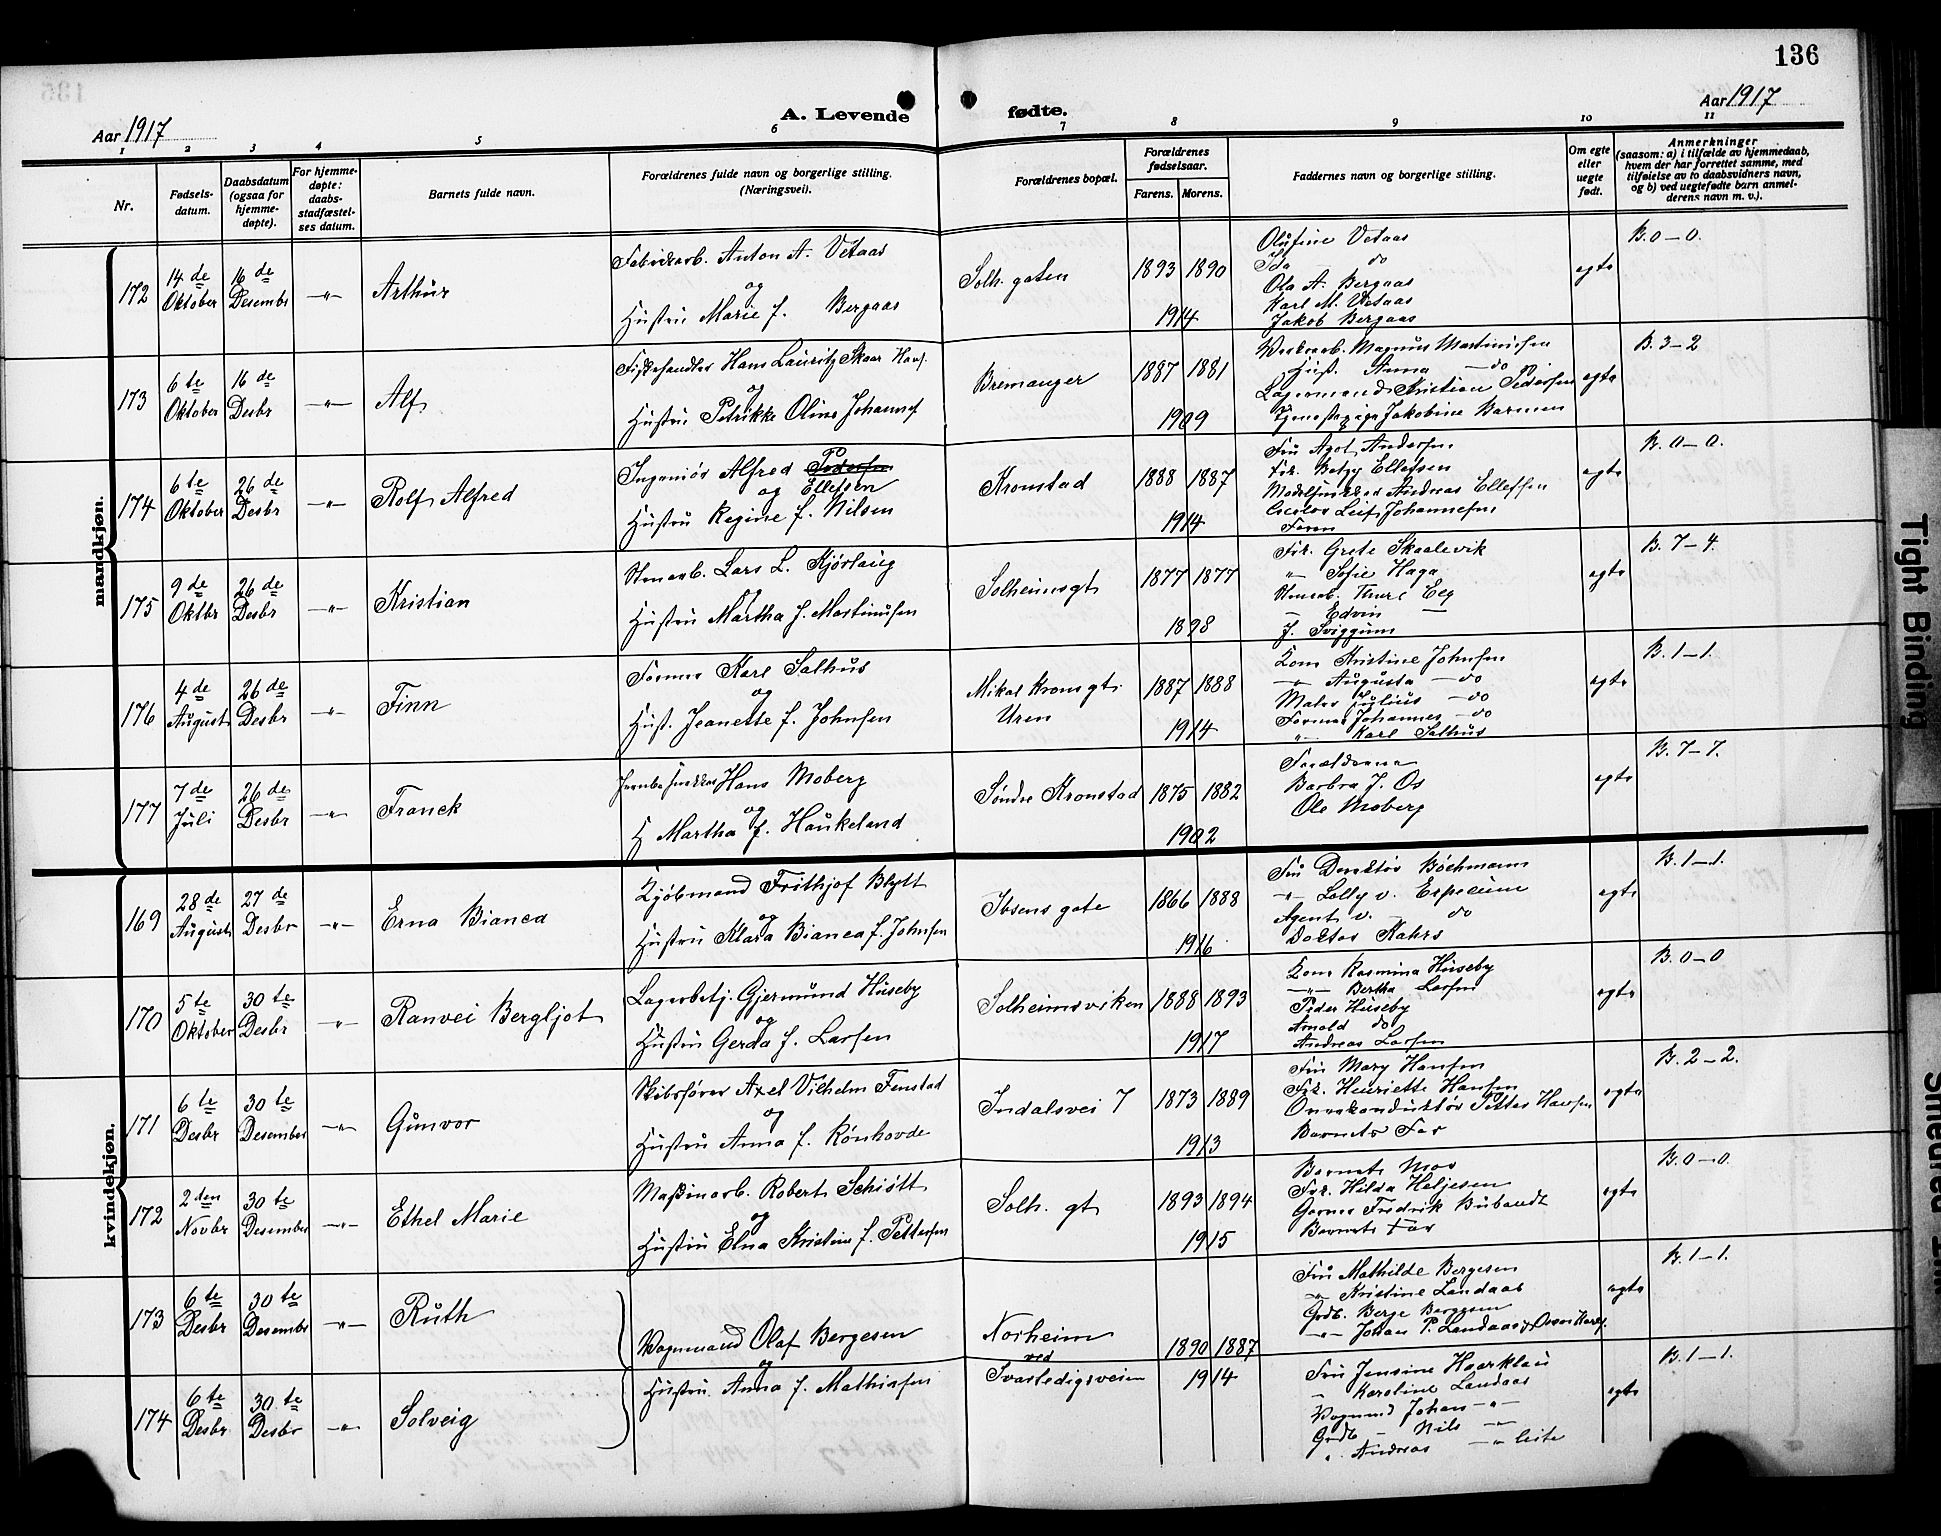 136
Aar 1917
A. Levende fødte.
Aar 1917
1 2 3 4 5 6 7 8 9 10 11
Nr.
Fødsels-
datum.
Daabsdatum
(ogsaa for
hjemme-
døpte).
For hjemme-
døpte:
daabs-
stadfæstel-
ses datum.
Barnets fulde navn.
Forældrenes fulde navn og borgerlige stilling.
(Næringsvei).
Forældrenes bopæl.
Forældrenes
fødselsaar.
Farens. Morens.
Faddernes navn og borgerlige stilling.
Om egte
eller
uegte
født.
Anmerkninger
(saasom: a) i tilfælde av hjemmedaab,
hvem der har forrettet samme, med
tilføielse av to daabsvidners navn,
og b) ved uegtefødte barn anmel-
derens navn m. v.).
mandkjøn.
172
14 de
Oktober
16 de
Desembr
—"—
Arthur
Fabrikarb. Anton A. Vetaas
og
Hustru Marie f. Bergaas
Solh. gaten
1893 1890
1914
Olufine Vetaas
Ida do
Ola A. Bergaas
Karl M. Vetaas
Jakob Bergaas
egte
B. 0–0.
173
6 te
Oktober
16 de
Desbr
—"—
Alf
Fiskehandler Hans Lauritz Skaar Hans.
og
Hustru Petrikke Oline Johannes
Bremanger
1887 1881
1909
Verksarb. Magnus Martinussen
Hust. Anna —do
Lagermand Kristian Pedersen
Tjenestepige Jakobine Barmen
egte
B. 3–2
174
6 te
Oktober
26 de
Desbr
—"—
Rolf Alfred
Ingeniør Alfred P
Pedersen
og Ellefsen
Hustru Regine f. Nilsen
Kronstad
1888 1887
1914
Fru Agot Andersen
Frk. Betzy Ellefsen
Modelsnekker Andreas Ellefsen
Leif Johannesen
Faren
egte
B. 0–0.
175
9 de
Oktbr
26 de
Desbr
—"—
Kristian
Stenarb. Lars L. Kjørlaug
og
Hustru Martha f. Martinusen
Solheimsgt
1877 1877
1898
Frk. Grete Skaalevik
—"— Sofie Haga
Stenarb. Thure Eeg
— Edvin —
J. Sviggum
egte
B. 7–4.
176
4 de
August
26 de
Desbr
—"—
Finn
Former Karl Salhus
og
Hust. Jeanette f. Johnsen
Mikal Kronsgt.
Uren
1887 1888
1914
Kone Kristine Johnsen
—"— Augusta —do
Maler Julius —do
Former Johannes —do
—"— Karl Salhus
egte
B. 1–1.
177
7 de
Juli
26 de
Desbr
—"—
Franck
Hans Moberg
og
H. Martha f. Haukeland
Søndre Kronstad
1875 1882
1902
Forældrene
Barbra J. Os
Ole Moberg
egte
B. 7–7.
kvindekjøn.
169
28 de
August
27 de
Desbr
—"—
Erna Bianca
Kjøbmand Frithjof Blytt
og
Hustru Klara Bianca f. Johnsen
Ibsens gate
1866 1888
1916
Fru Direktør Bøchmann
—"— Lolly v. Erpecum
Agent v. — do
Doktor Kahrs
egte
B. 1–1.
170
5 te
Oktober
30 te
Desbr
—"—
Ranvei Bergljot
Lagerbetj. Gjermund Huseby
og
Hustru Gerda f. Larsen
Solheimsviken
1888 1893
1917
Kone Rasmina Huseby
—"— Bertha Larsen
Peder Huseby
Arnold do
Andreas Larsen
egte
B. 0–0
171
6 te
Desbr
30 te
Desember
—"—
Gunvor
Skibsfører Axel Vilhelm Fenstad
og
Hustru Anna f. Rønhovde
Indalsvei 7
1873 1889
1913
Fru Mary Hansen
Frk. Henriette Hansen
Overkonduktør Petter Hansen
Barnets Far
egte
B. 2–2.
172
2 den
Novbr
30 te
Desember
—"—
Ethel Marie
Maskinarb. Robert Schiøtt
og
Hustru Elna Kristine f. Pettersen
Solh. gt
1893 1894
1915
Barnets Mor
Frk. Hilda Heljesen
Garver Fredrik Bubandt
Barnets Far
egte
B. 0–0.
173
6 te
Desbr
30 te
Desembr
—"—
Ruth
Vognmand Olaf Bergesen
og
Hustru. Anna f. Mathisen
Norheim
ved
Svartedigsveien
1890 1887
1914
Fru Mathilde Bergesen
—"— Kristine Landaas
Grdb. Berge Bergesen
—"— Johan P. Landaas
egte
B. 1–1.
174
6 te
Desbr
30 te
Desbr
—"—
Solveig
Fru Jensine Haarklau
—"— Karoline Landaas
Vognmd Johan —"—
Grdb — Nils —"—
—"— Andreas —"— Leite
egte
B. 1–1.
Tight Binding